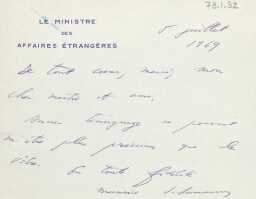 78.1.32
LE MINISTRE
DES
AFFAIRES ÉTRANGÈRES
5 juillet
1969
De tout cœur, merci, mon
cher maître et ami.
Aucun témoignage ne pouvait
m'être plus précieux que le
vôtre.
En toute fidélité
Maurice Schumann